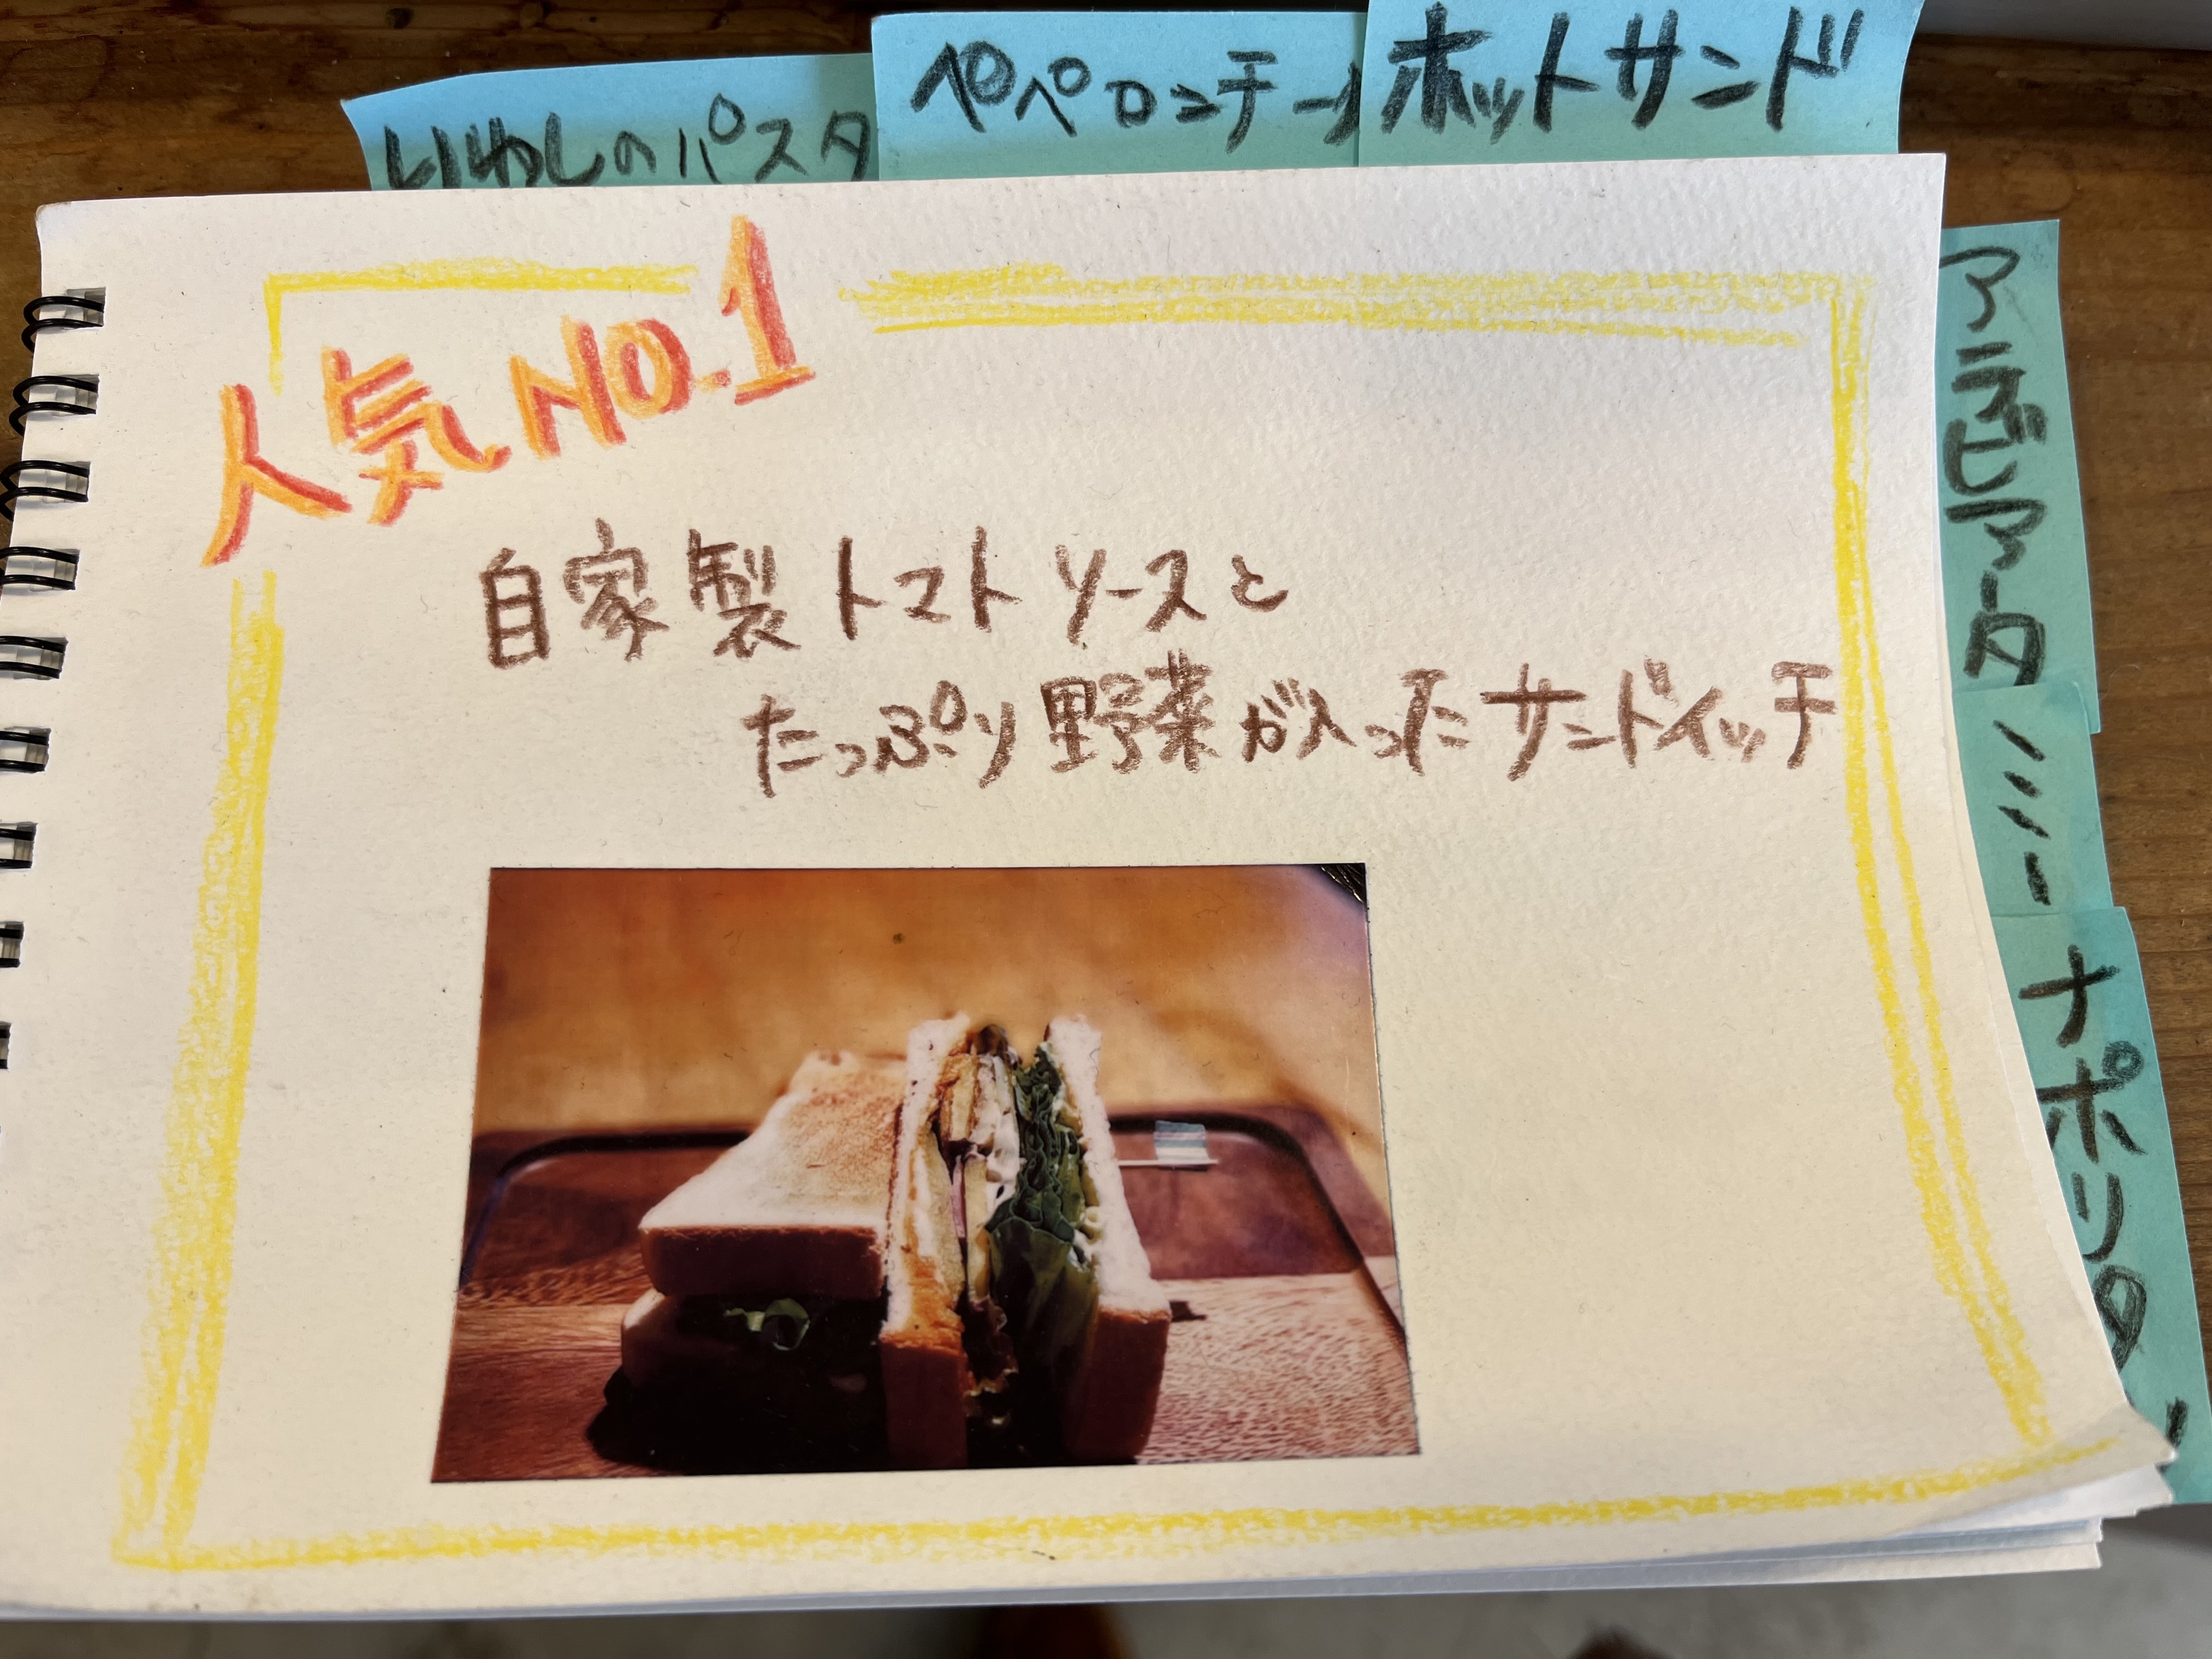 いわしのパスタ
ペペロンチー
ホットサンド
人気NO.1
自家製トマトソースと
たっぷり野菜が入ったサンドイッチ
ナポリタ